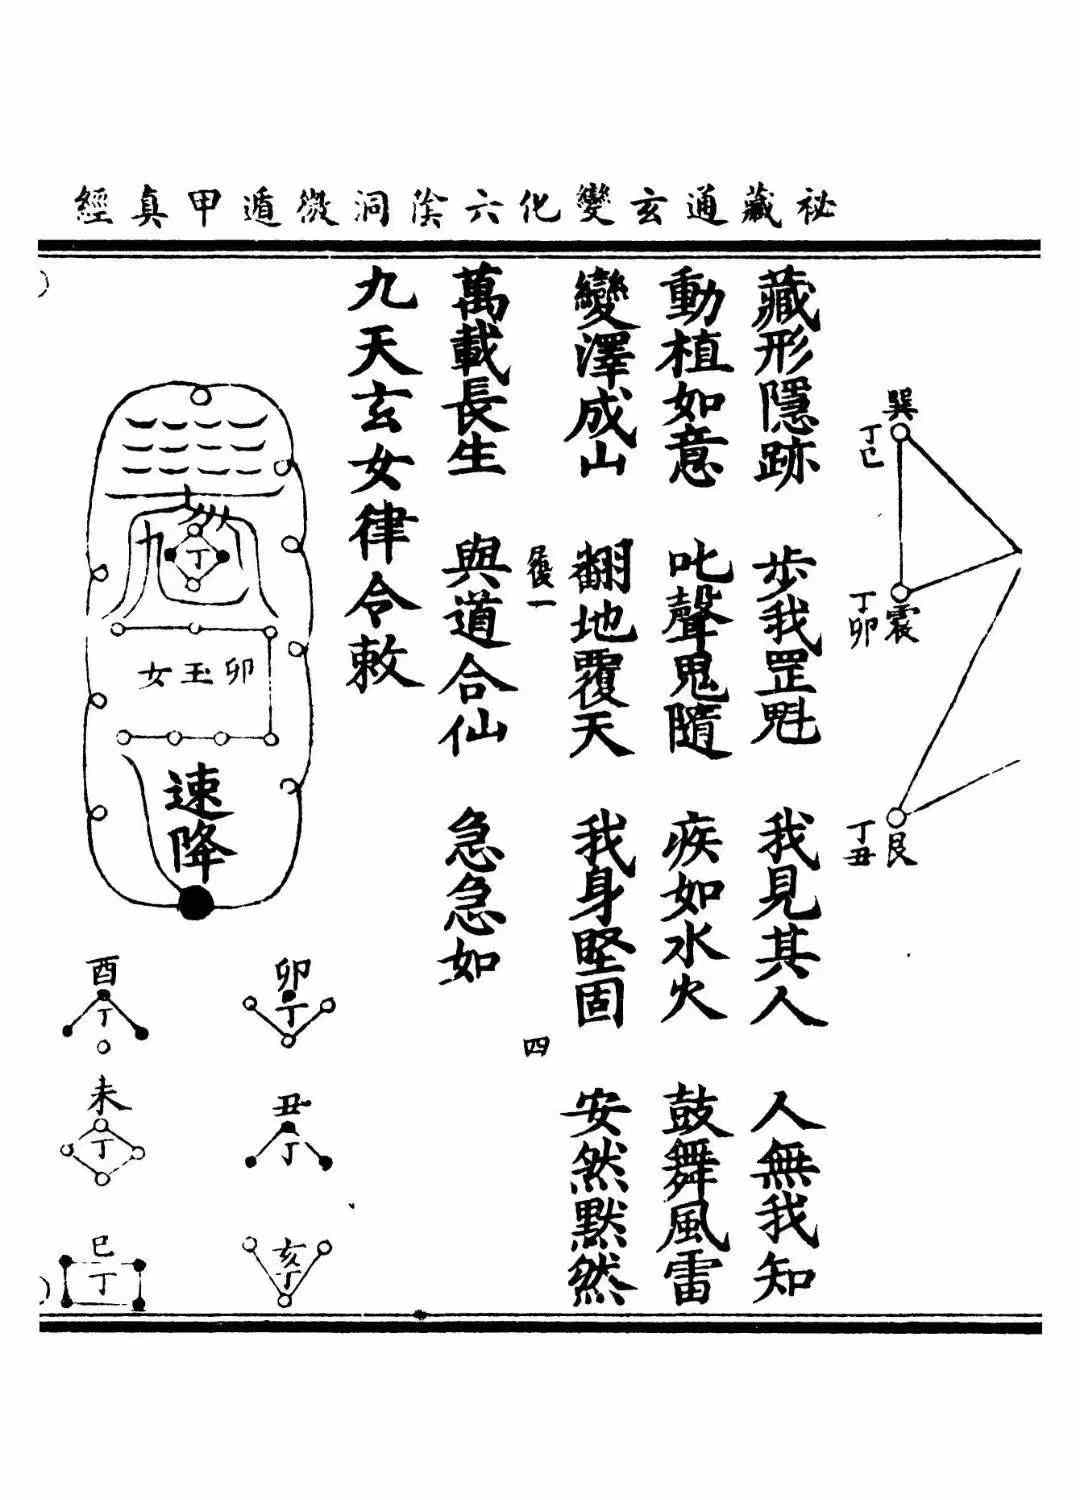 秘藏通玄變化六陰洞微遁甲真經
巽
丁巳
震
丁卯
艮
丁丑
藏形隱跡 步我罡魁 我見其人 人無我知
動植如意 叱聲鬼隨 疾如水火 鼓舞風雷
變澤成山 翻地覆天 我身堅固 安然默然
四
萬載長生 與道合仙 急急如
九天玄女律令敕
丁
卯玉女
速降
卯
丁
丑
丁
亥
丁
酉
丁
未
丁
巳
丁